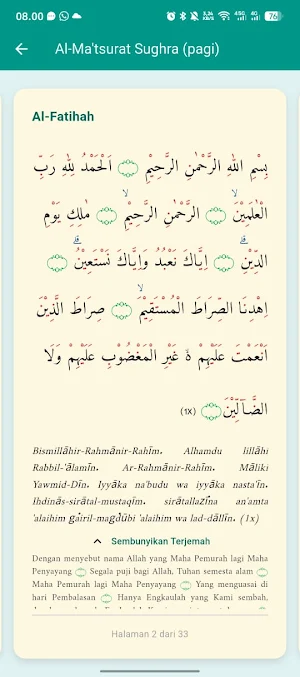 08.00
3,34 KB/S
4,5G
4G
76
Al-Ma'tsurat Sughra (pagi)
Al-Fatihah
بِسْمِ اللهِ الرَّحْمٰنِ الرَّحِيْمِ ۝ اَلْحَمْدُ لِلهِ رَبِّ
الْعٰلَمِيْنَۙ ۝ الرَّحْمٰنِ الرَّحِيْمِۙ ۝ مٰلِكِ يَوْمِ
الدِّيْنِۗ ۝ اِيَّاكَ نَعْبُدُ وَاِيَّاكَ نَسْتَعِيْنُۗ ۝
اِهْدِنَا الصِّرَاطَ الْمُسْتَقِيْمَۙ ۝ صِرَاطَ الَّذِيْنَ
اَنْعَمْتَ عَلَيْهِمْ ەۙ غَيْرِ الْمَغْضُوْبِ عَلَيْهِمْ وَلَا
الضَّاۤلِّيْنَ ۝ (1X)
Bismillāhir-Rahmānir-Rahīm. Alhamdu lillāhi
Rabbil-'ālamīn. Ar-Rahmānir-Rahīm. Māliki
Yawmid-Dīn. Iyyāka na'budu wa iyyāka nasta'īn.
Ihdinās-sirātal-mustaqīm. sirātallazīna an'amta
'alaihim gairil-magdūbi 'alaihim wa lad-dāllīn. (1x)
Sembunyikan Terjemah
Dengan menyebut nama Allah yang Maha Pemurah lagi Maha
Penyayang ۝ Segala puji bagi Allah, Tuhan semesta alam ۝
Maha Pemurah lagi Maha Penyayang ۝ Yang menguasai di
hari Pembalasan ۝ Hanya Engkaulah yang Kami sembah,
Halaman 2 dari 33